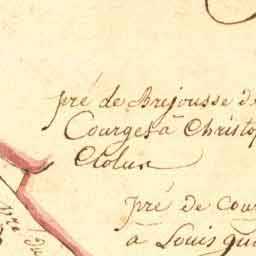 pré de Brejousse de
Courges à Christop
Clolus
pré de Cour
à Louis gu
pré
du